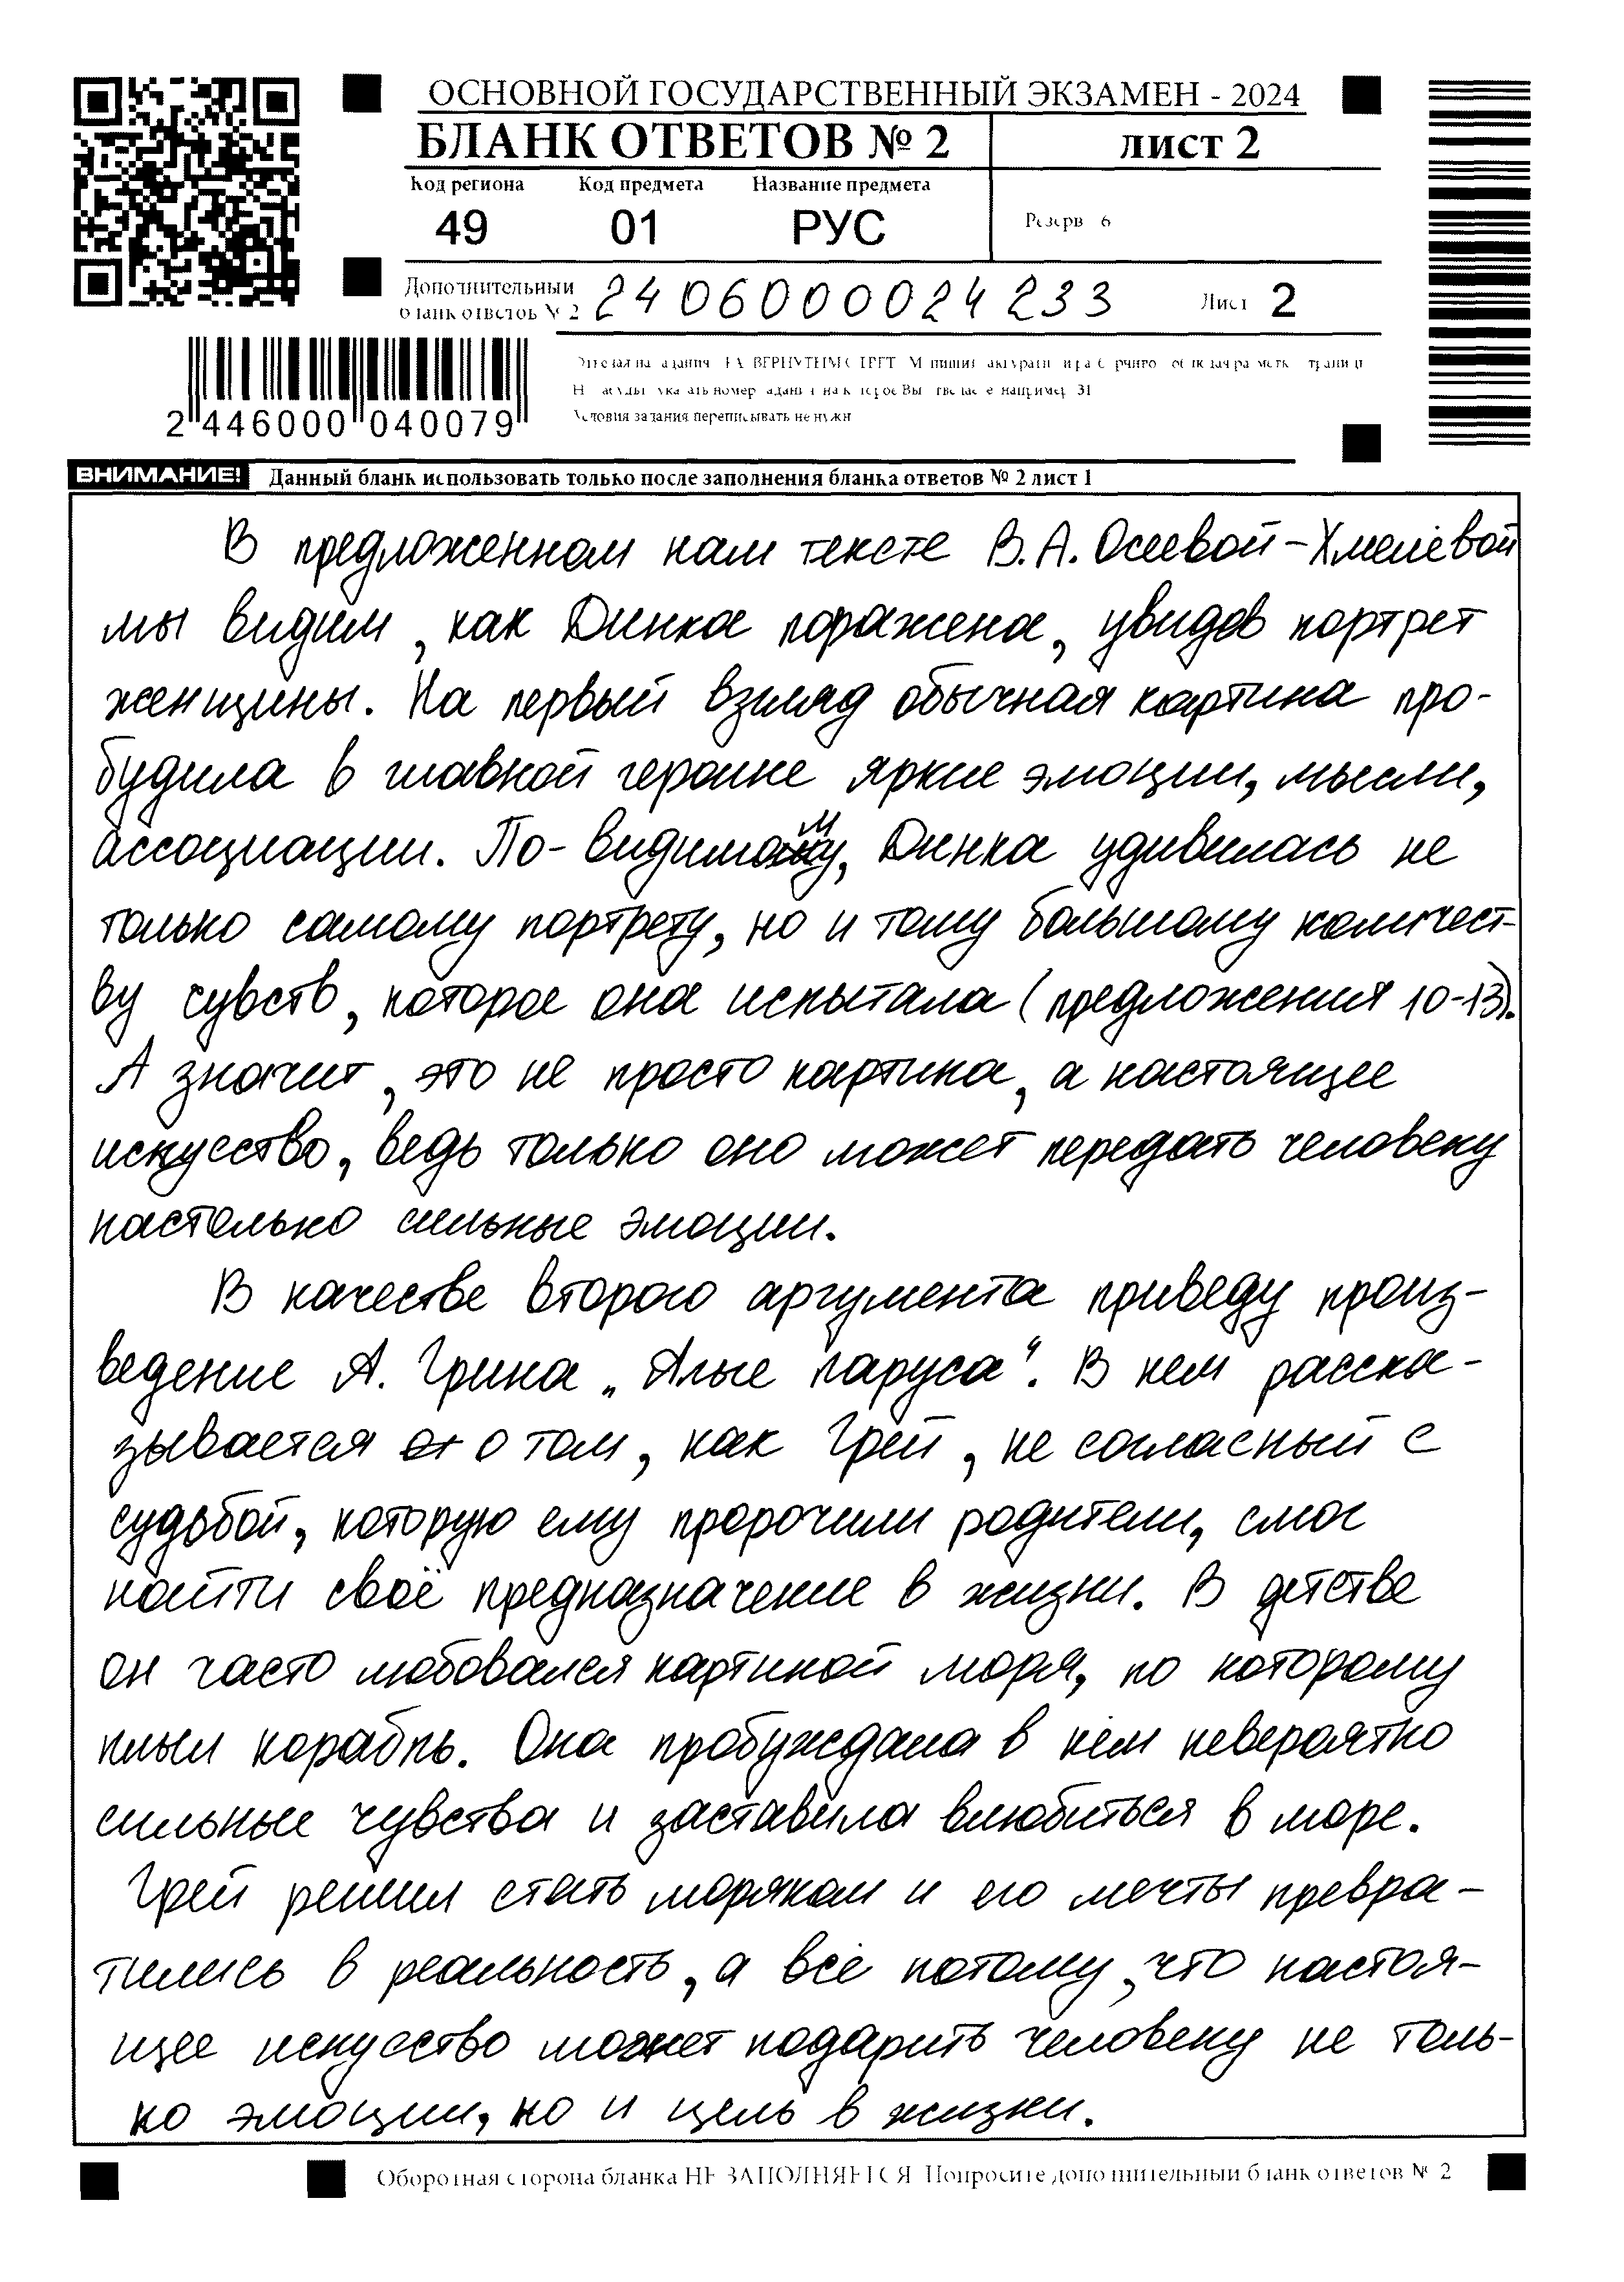 ОСНОВНОЙ ГОСУДАРСТВЕННЫЙ ЭКЗАМЕН - 2024
БЛАНК ОТВЕТОВ № 2 лист 2
Код региона Код предмета Название предмета
49 01 РУС
Резерв 6
Дополнительный бланк ответов № 2 2406000024233 Лист 2
2 446000 040079
Условия задания переписывать не нужн
ВНИМАНИЕ! Данный бланк использовать только после заполнения бланка ответов № 2 лист 1
В предложенном нам тексте В.А. Осеевой-Хмелёвой
мы видим, как Динка поражена, увидев портрет
женщины. На первый взгляд обычная картина про-
будила в главной героине яркие эмоции, мысли,
ассоциации. По-видимому, Динка удивилась не
только самому портрету, но и тому большому количест-
ву чувств, которое она испытала (предложения 10-13).
А значит, это не просто картина, а настоящее
искусство, ведь только оно может передать человеку
настолько сильные эмоции.
В качестве второго аргумента приведу произ-
ведение А. Грина „Алые паруса“. В нем расска-
зывается о том, как Грей, не согласный с
судьбой, которую ему пророчили родители, смог
найти своё предназначение в жизни. В детстве
он часто любовался картиной моря, по которому
плыл корабль. Она пробуждала в нём невероятно
сильные чувства и заставила влюбиться в море.
Грей решил стать моряком и его мечты превра-
тились в реальность, а всё потому, что настоя-
щее искусство может подарить человеку не толь-
ко эмоции, но и цель в жизни.
Оборотная сторона бланка НЕ ЗАПОЛНЯЕТСЯ Попросите дополнительный бланк ответов № 2